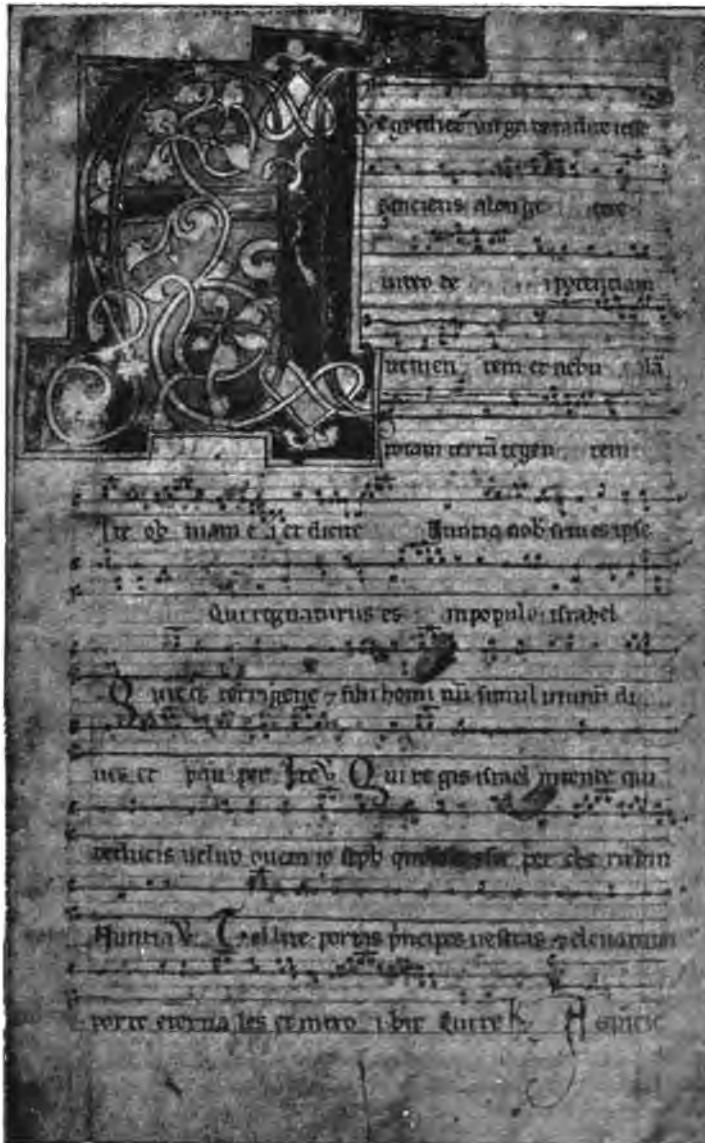 virga de radice iesse
spiciens alonge ecce
uideo de i potentiam
uenien tem et nebu lā
totam terrā tegen tem
Ite ob uiam e i et dicite Nuntia nob si tu es ipse
Qui regnaturus es in populo israhel
terrigene ⁊ filii homi nū simul inunū di
ues et pau per Ite V Qui regis israel intende qui
deducis uelud ouem io seph per che rubin
Nuntia V Tollite portas p̄ncipes uestras ⁊ eleuamini
porte eterna les et intro i bit Qui re Aspicie